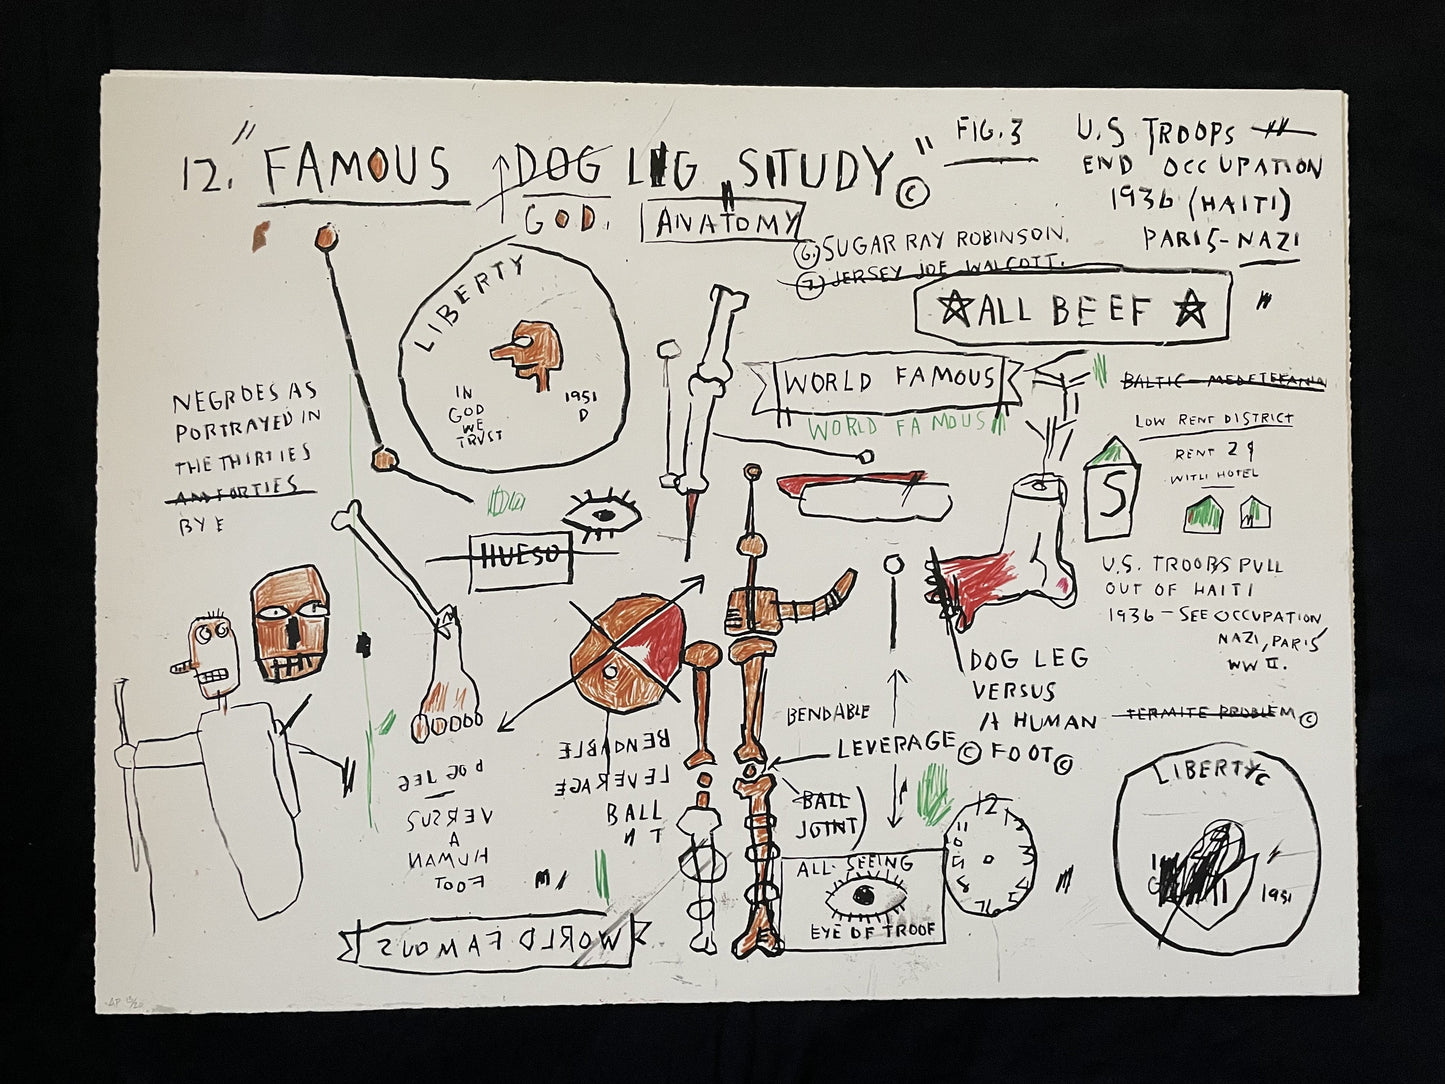 12. "FAMOUS DOG LEG STUDY" ©
GOD.
ANATOMY
FIG. 3
U.S TROOPS
END OCCUPATION
1936 (HAITI)
PARIS-NAZI
6. SUGAR RAY ROBINSON.
7. JERSEY JOE WALCOTT.
☆ALL BEEF☆
LIBERTY
IN
GOD
WE
TRUST
1951
D
WORLD FAMOUS
WORLD FAMOUS
BALTIC-MEDETERANIA
LOW RENT DISTRICT
RENT 2
WITH HOTEL
S
NEGROES AS
PORTRAYED IN
THE THIRTIES
AND FORTIES
BY E
HUESO
U.S. TROOPS PULL
OUT OF HAITI
1936-SEE OCCUPATION
NAZI, PARIS
WW II.
DOG LEG
VERSUS
A HUMAN
FOOT©
TERMITE PROBLEM©
BENDABLE
LEVERAGE©
BALL
JOINT)
BENDABLE
LEVERAGE
BALL
N T
DOG LEG
VERSUS
A
HUMAN
FOOT
ALL-SEEING
EYE OF TROOF
12
11
LIBERTY
1951
WORLD FAMOUS